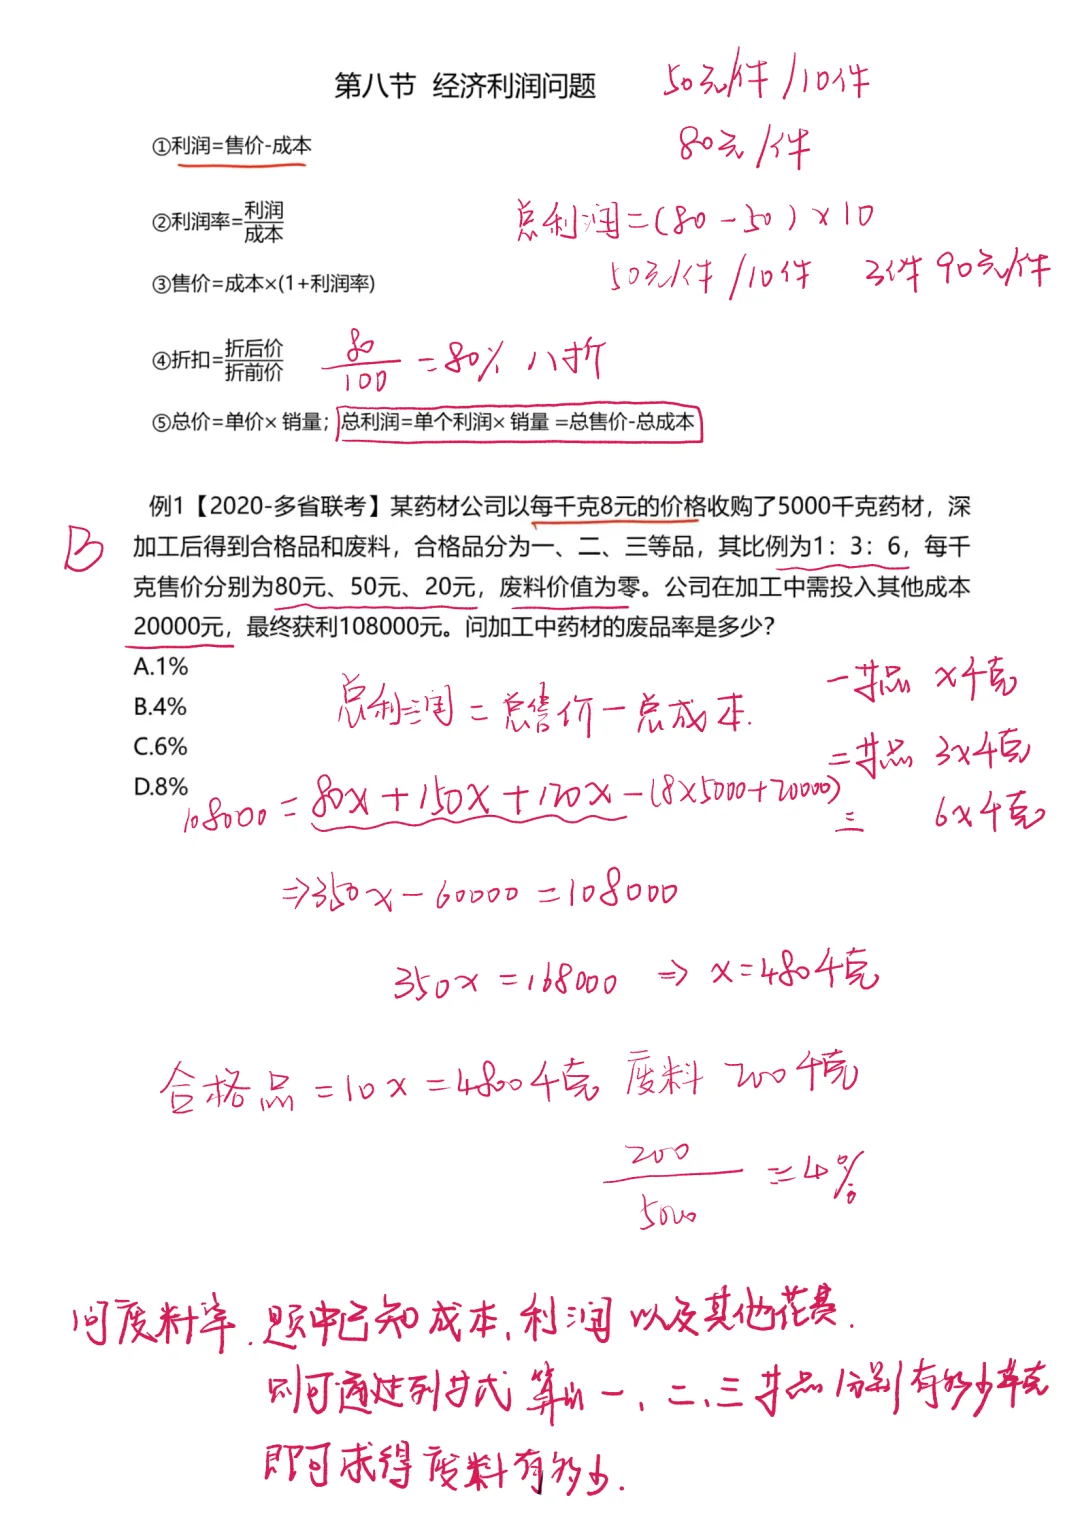 第八节 经济利润问题
50元/件 /10件
①利润=售价-成本
80元/件
②利润率=利润/成本
总利润=(80-50)×10
50元/件 /10件 3件 90元/件
③售价=成本×(1+利润率)
④折扣=折后价/折前价
80/100 =80% 八折
⑤总价=单价×销量；总利润=单个利润×销量=总售价-总成本
例1【2020-多省联考】某药材公司以每千克8元的价格收购了5000千克药材，深
B
加工后得到合格品和废料，合格品分为一、二、三等品，其比例为1：3：6，每千
克售价分别为80元、50元、20元，废料价值为零。公司在加工中需投入其他成本
20000元，最终获利108000元。问加工中药材的废品率是多少？
A.1%
B.4%
C.6%
D.8%
总利润=总售价-总成本.
一等品 x千克
二等品 3x千克
三 6x千克
108000=80x+150x+120x-(8×5000+20000)
⇒350x-60000=108000
350x=168000 ⇒ x=480千克
合格品=10x=4800千克 废料 200千克
200/5000 =4%
问废料率.题中已知成本、利润以及其他花费.
则可通过列方式算出一、二、三等品分别有多少千克
即可求得废料有多少.